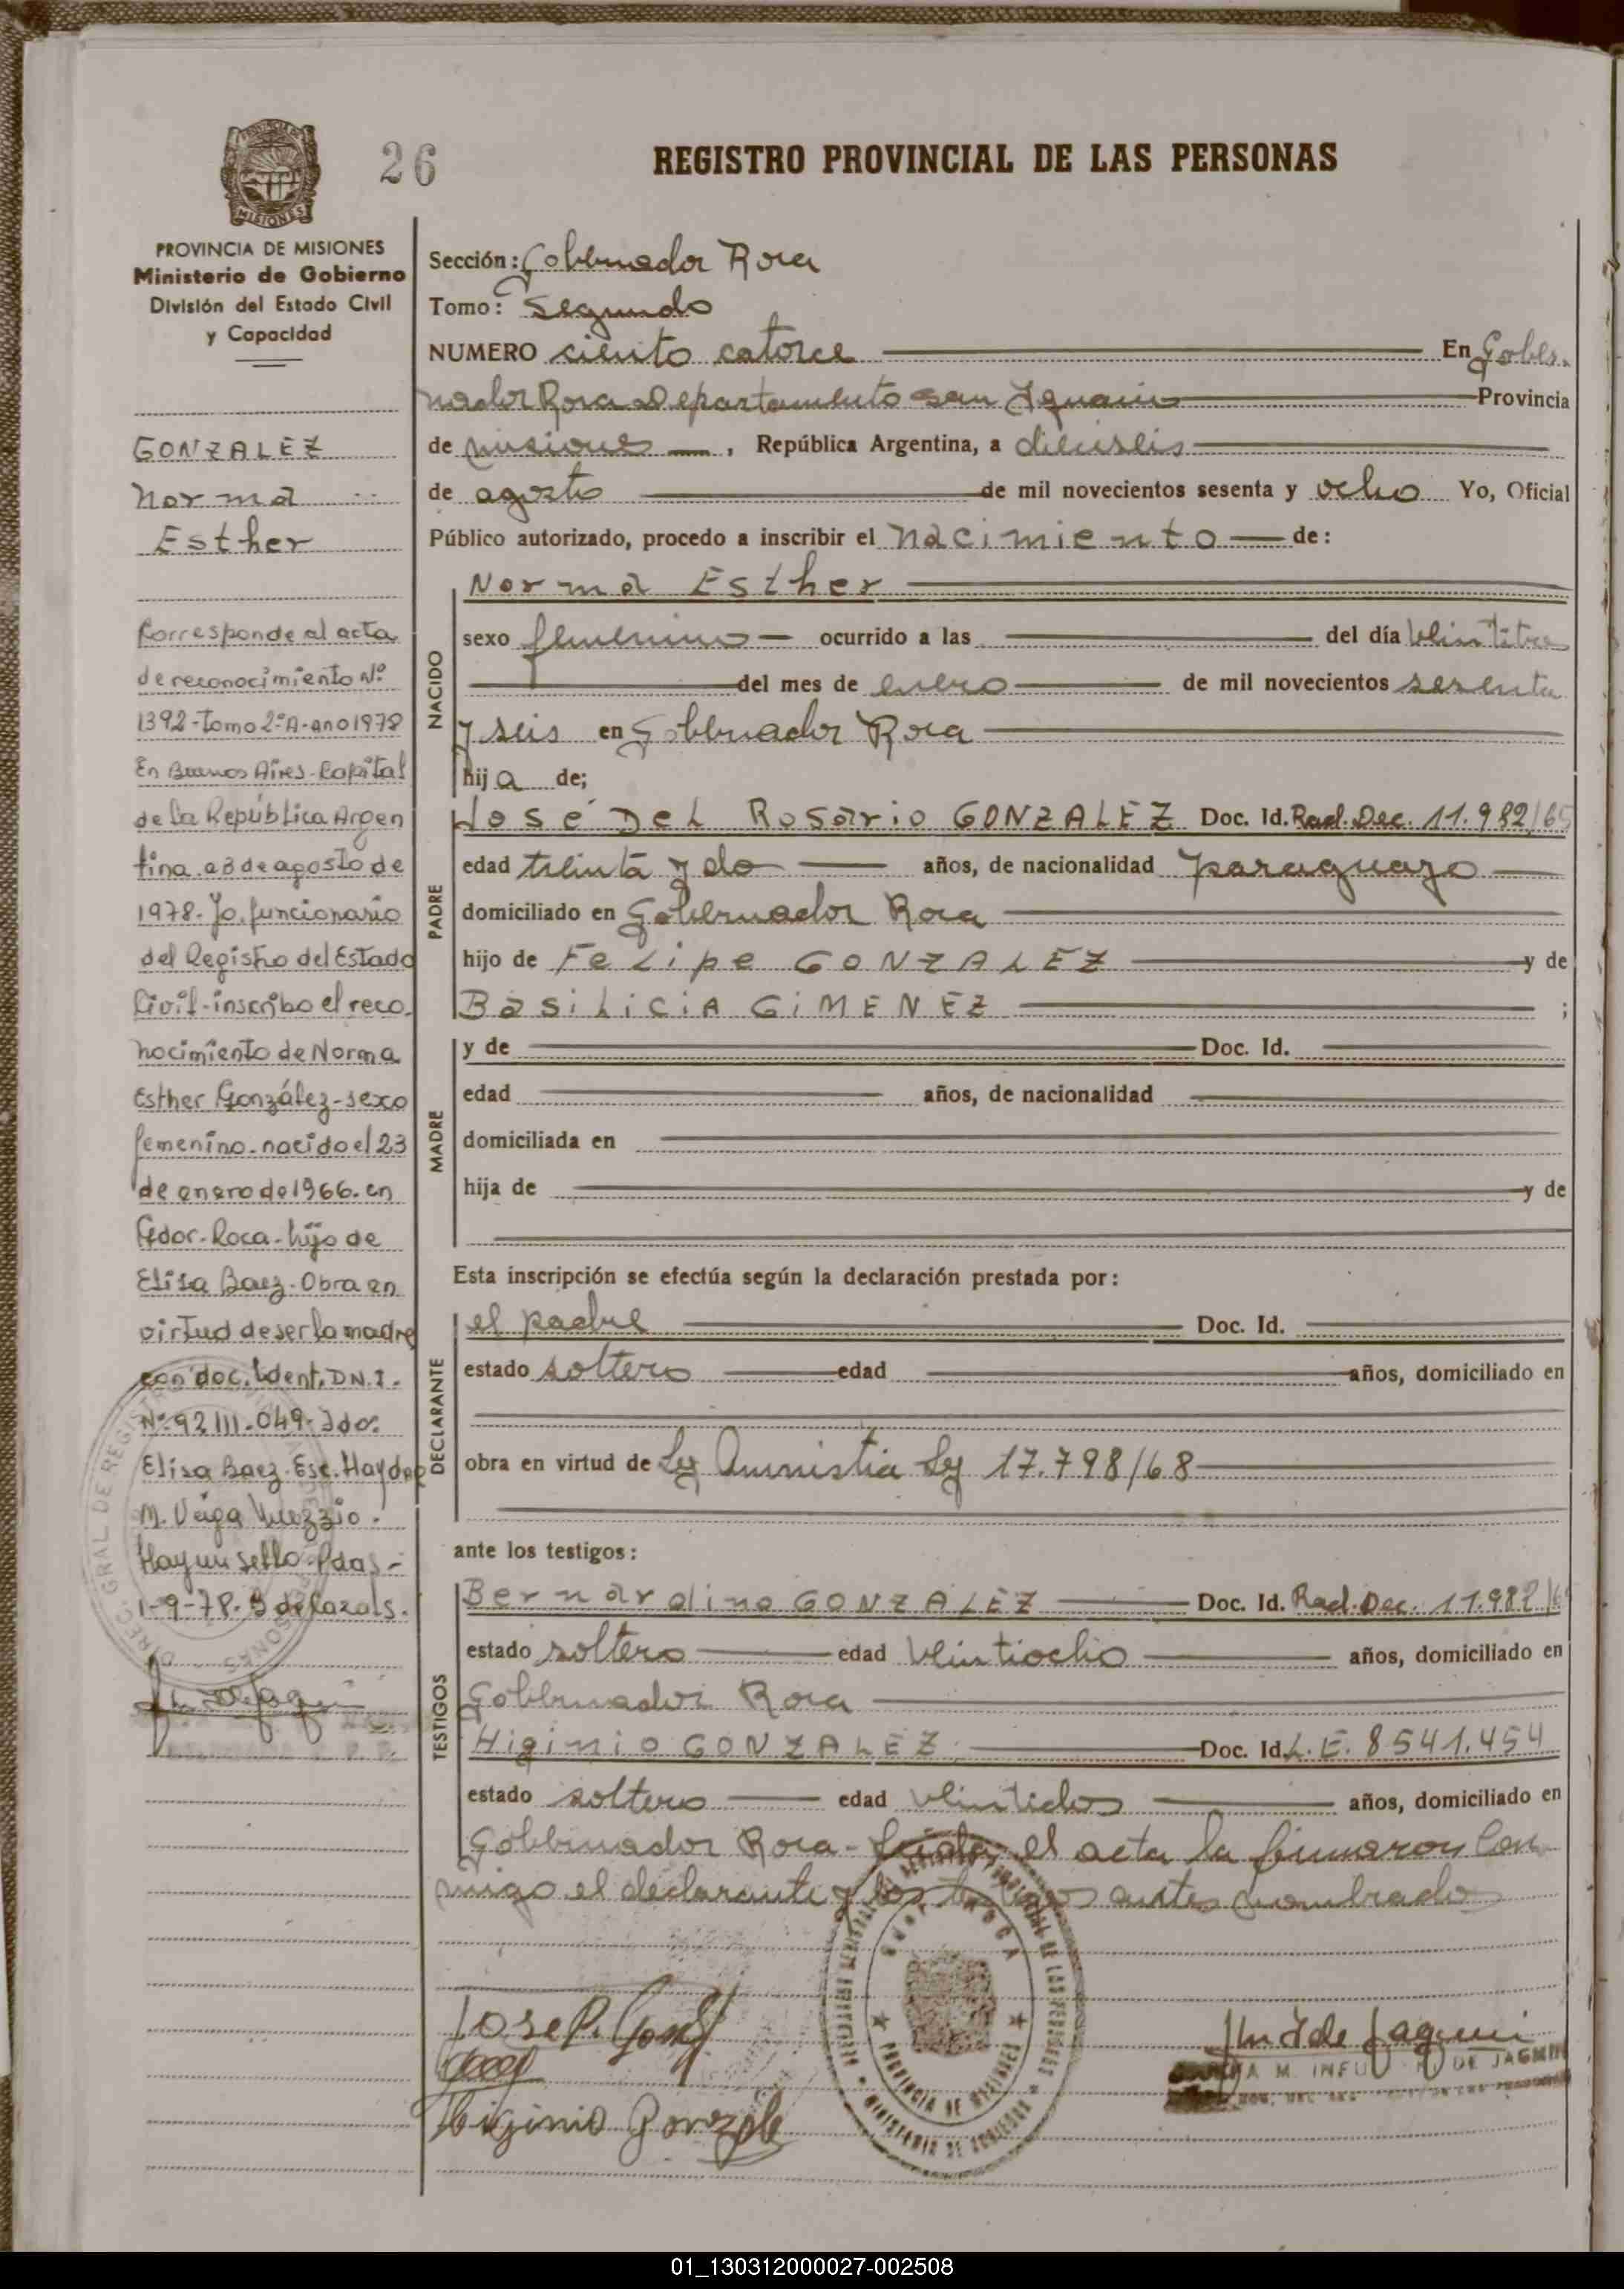 26
REGISTRO PROVINCIAL DE LAS PERSONAS
MISIONES
PROVINCIA DE MISIONES
Ministerio de Gobierno
División del Estado Civil
y Capacidad
GONZALEZ
Norma
Esther
Corresponde al acta
de reconocimiento Nº
1392-Tomo 2ºA-año 1978
En Buenos Aires-Capital
de la República Argen
tina. a 3 de agosto de
1978- Yo. funcionario
del Registro del Estado
Civil-inscribo el reco.
nocimiento de Norma
Esther González-sexo
femenino. nacido el 23
de enero de 1966. en
Gdor. Roca-hijo de
Elisa Baez. Obra en
virtud de ser la madre
con doc. Ident. DN.I.
Nº 92111.049. Fdo:
Elisa Baez. Esc. Haydee
M. Veiga
Hay un sello. Pdas-
1-9-78.
Sección: Gobernador Roca
Tomo: Segundo
NUMERO ciento catorce En Gober-
nador Roca Departamento San Ignacio Provincia
de misiones, República Argentina, a dieciseis
de agosto de mil novecientos sesenta y ocho Yo, Oficial
Público autorizado, procedo a inscribir el Nacimiento de:
NACIDO
Norma Esther
sexo femenino ocurrido a las del día veintitres
del mes de enero de mil novecientos sesenta
y seis en Gobernador Roca
hija de;
PADRE
José Del Rosario GONZALEZ Doc. Id. Rad. Dec. 11.982/65
edad treinta y do años, de nacionalidad paraguayo
domiciliado en Gobernador Roca
hijo de Felipe GONZALEZ y de
BasiLiCiA GiMENEZ ;
MADRE
y de Doc. Id.
edad años, de nacionalidad
domiciliada en
hija de y de
Esta inscripción se efectúa según la declaración prestada por:
DECLARANTE
el padre Doc. Id.
estado soltero edad años, domiciliado en
obra en virtud de Ley Amnistia Ley 17.798/68
ante los testigos:
TESTIGOS
Bernardino GONZALEZ Doc. Id. Rad. Dec. 11.982/6
estado soltero edad veintiocho años, domiciliado en
Gobernador Roca
Higinio GONZALEZ Doc. Id. L.E. 8541.454
estado soltero edad veintidos años, domiciliado en
Gobernador Roca- Leida el acta la firmaron con
migo el declarante y los testigos antes nombrados
Jose R. Gonz
Higinio Gonzale
GDOR. ROCA
PROVINCIA DE MISIONES
MINISTERIO DE GOBIERNO
M. INFU DE JAGMIN
01_130312000027-002508